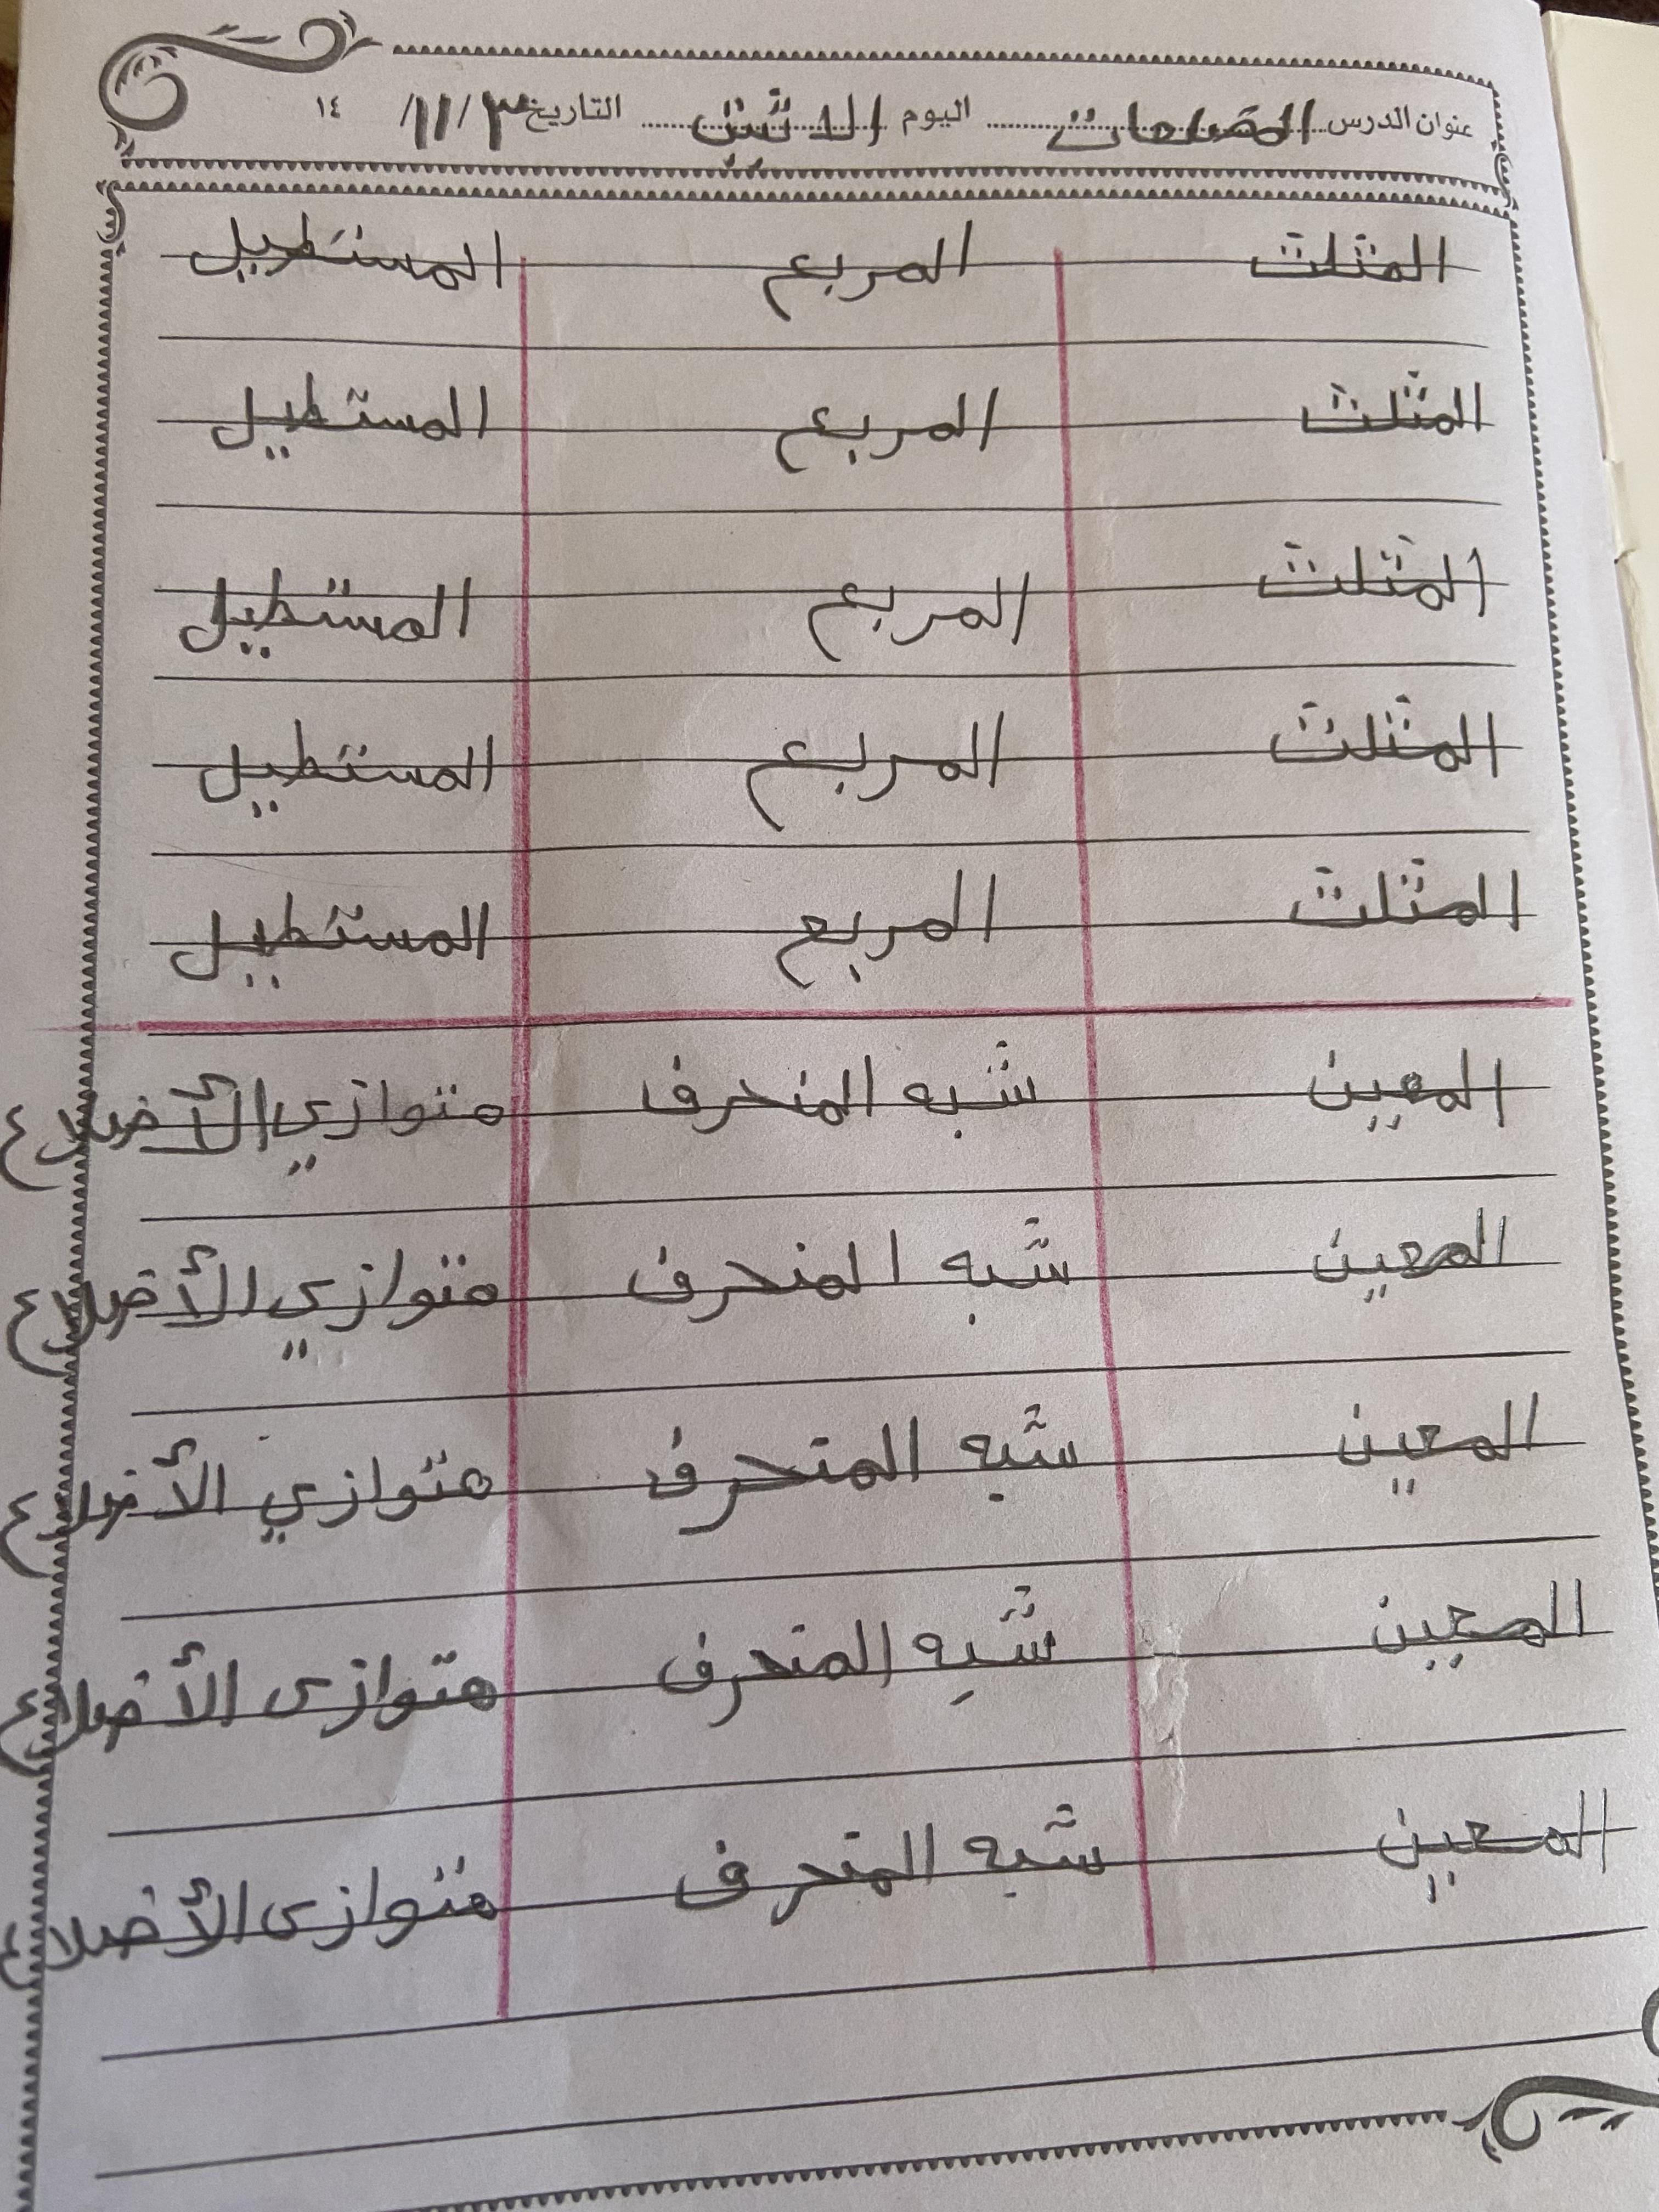 عنوان الدرس المضلعات اليوم الاثنين التاريخ ٣/١١/ ١٤
المثلث المربع المستطيل
المثلث المربع المستطيل
المثلث المربع المستطيل
المثلث المربع المستطيل
المثلث المربع المستطيل
المعين شبه المنحرف متوازي الأضلاع
المعين شبه المنحرف متوازي الأضلاع
المعين شبه المنحرف متوازي الأضلاع
المعين شبه المنحرف متوازى الأضلاع
المعين شبه المنحرف متوازى الأضلاع